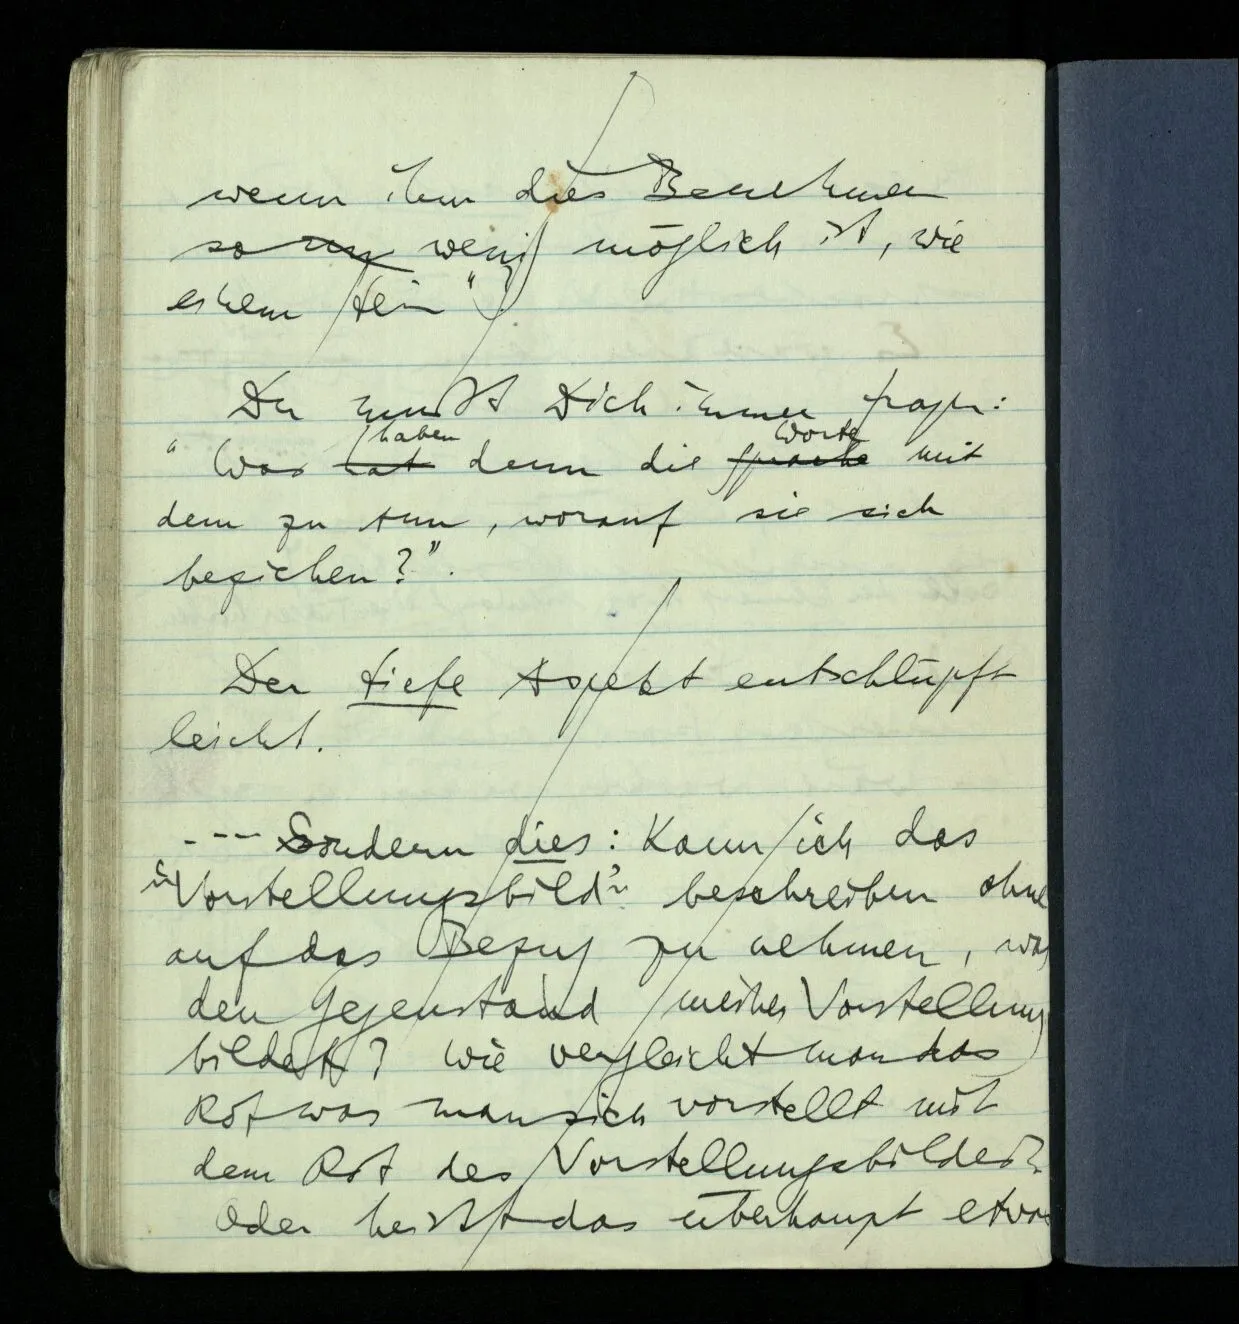 wenn ihm dies Benehmen
so wenig möglich ist, wie
einem Stein"
Du mußt Dich immer fragen:
"Was hat haben denn die Sprache Worte mit
dem zu tun, worauf sie sich
beziehen?".
Der tiefe Aspekt entschlüpft
leicht.
--- Sondern dies: Kann ich das
"Vorstellungsbild" beschreiben ohne
auf das Bezug zu nehmen, was
den Gegenstand meiner Vorstellung
bildet? Wie vergleicht man das
Rot was man sich vorstellt mit
dem Rot des Vorstellungsbildes?
Oder heißt das überhaupt etwas